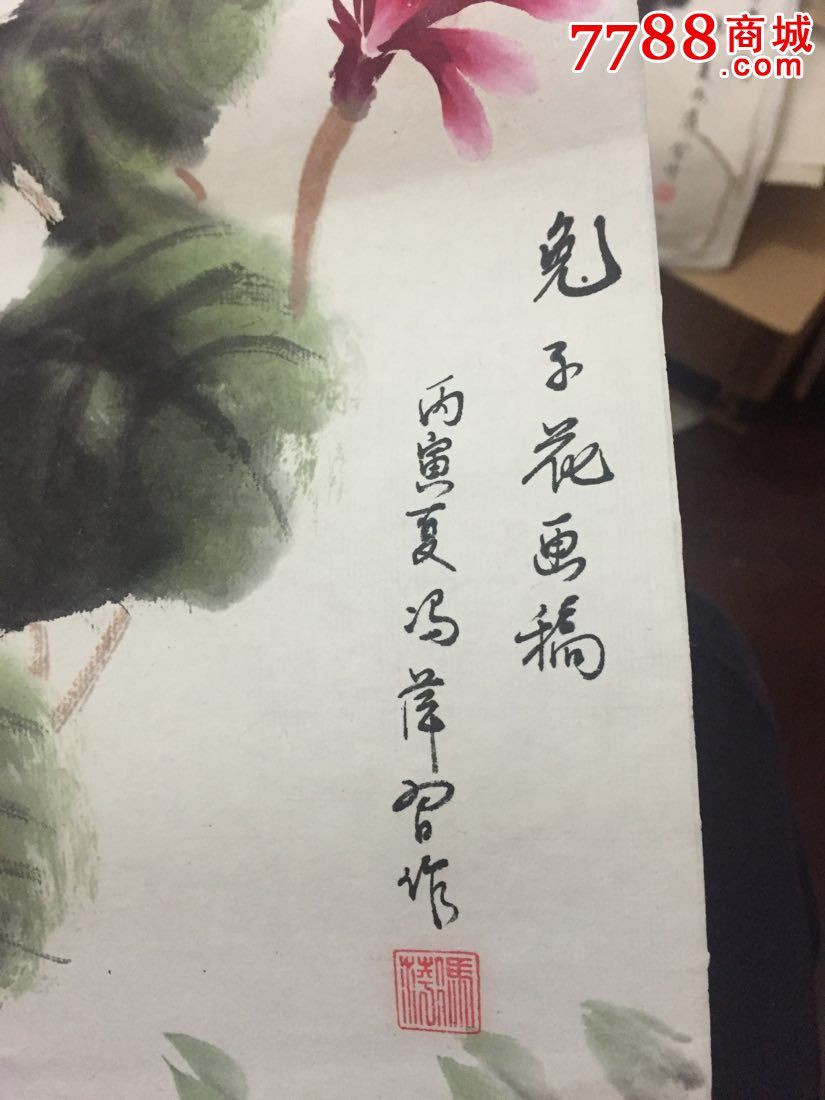 7788商城
.com
兔子花画稿
丙寅夏冯萍习作